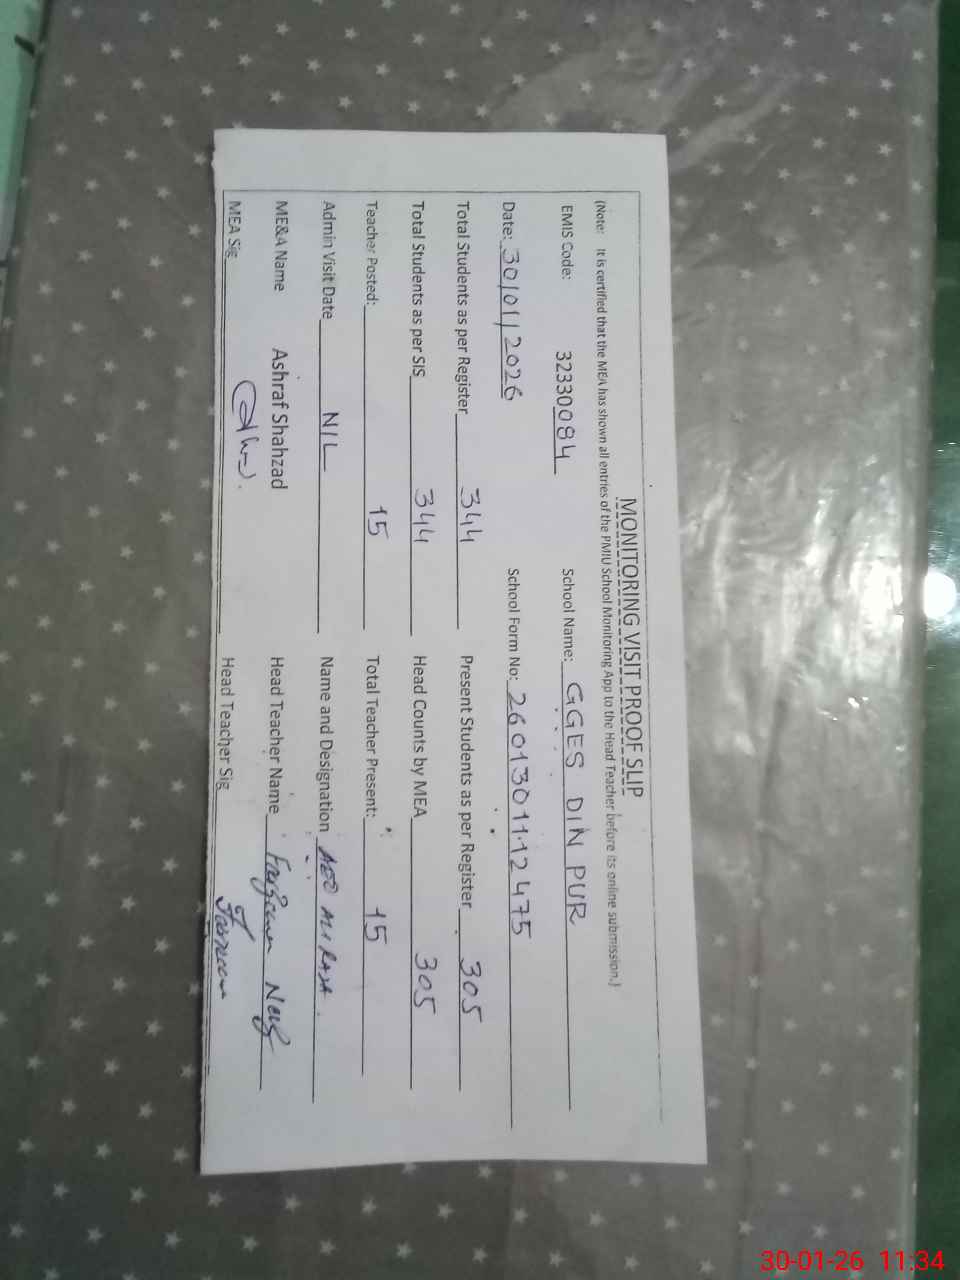 MONITORING VISIT PROOF SLIP
(Note: It is certified that the MEA has shown all entries of the PMIU School Monitoring App to the Head Teacher before its online submission.)
EMIS Code: 32330084 School Name: GGES DIN PUR
Date: 30/01/2026 School Form No: 2601301112475
Total Students as per Register 344 Present Students as per Register 305
Total Students as per SIS 344 Head Counts by MEA 305
Teacher Posted: 15 Total Teacher Present: 15
Admin Visit Date NIL Name and Designation AEO
ME&A Name Ashraf Shahzad Head Teacher Name
MEA Sig Head Teacher Sig
30-01-26 11:34